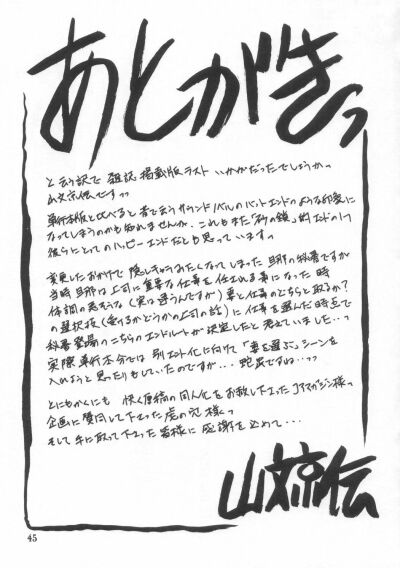 あとがきっ
と云う訳で 雑誌掲載版ラスト いかがだったでしょうかっ
山文京伝ですっっ
単行本版と比べると 昔で云うサウンドノベルのバットエンドのような印象に
なってしまうのかも知れませんが、これもまた「砂の鎖」的エンドの1つ
彼らにとってのハッピーエンドだとも思っていますっ
変更したおかげで 隠しキャラみたくなってしまった 旦那の秘書ですが
当時 旦那は上司に重要な仕事を任される事になった時
体調の悪そうな(実は違うんですが)妻と仕事のどちらを取るか?
の選択枝(受けるかどうかの上司の話)に仕事を選んだ時点で
秘書登場のこちらのエンドルートが決定したと考えていました‥っ
実際 単行本分では 別エンド化に向けて「妻を選ぶ」シーンを
入れようと思ったりもしていたのですが... 蛇足ですね‥っっ
とにもかくにも 快く原稿の同人化をお許し下さったJアイマガジン様っ
企画に賛同して下さった虎の穴様っ
そして手に取って下さった皆様に 感謝を込めて...
山文京伝
45